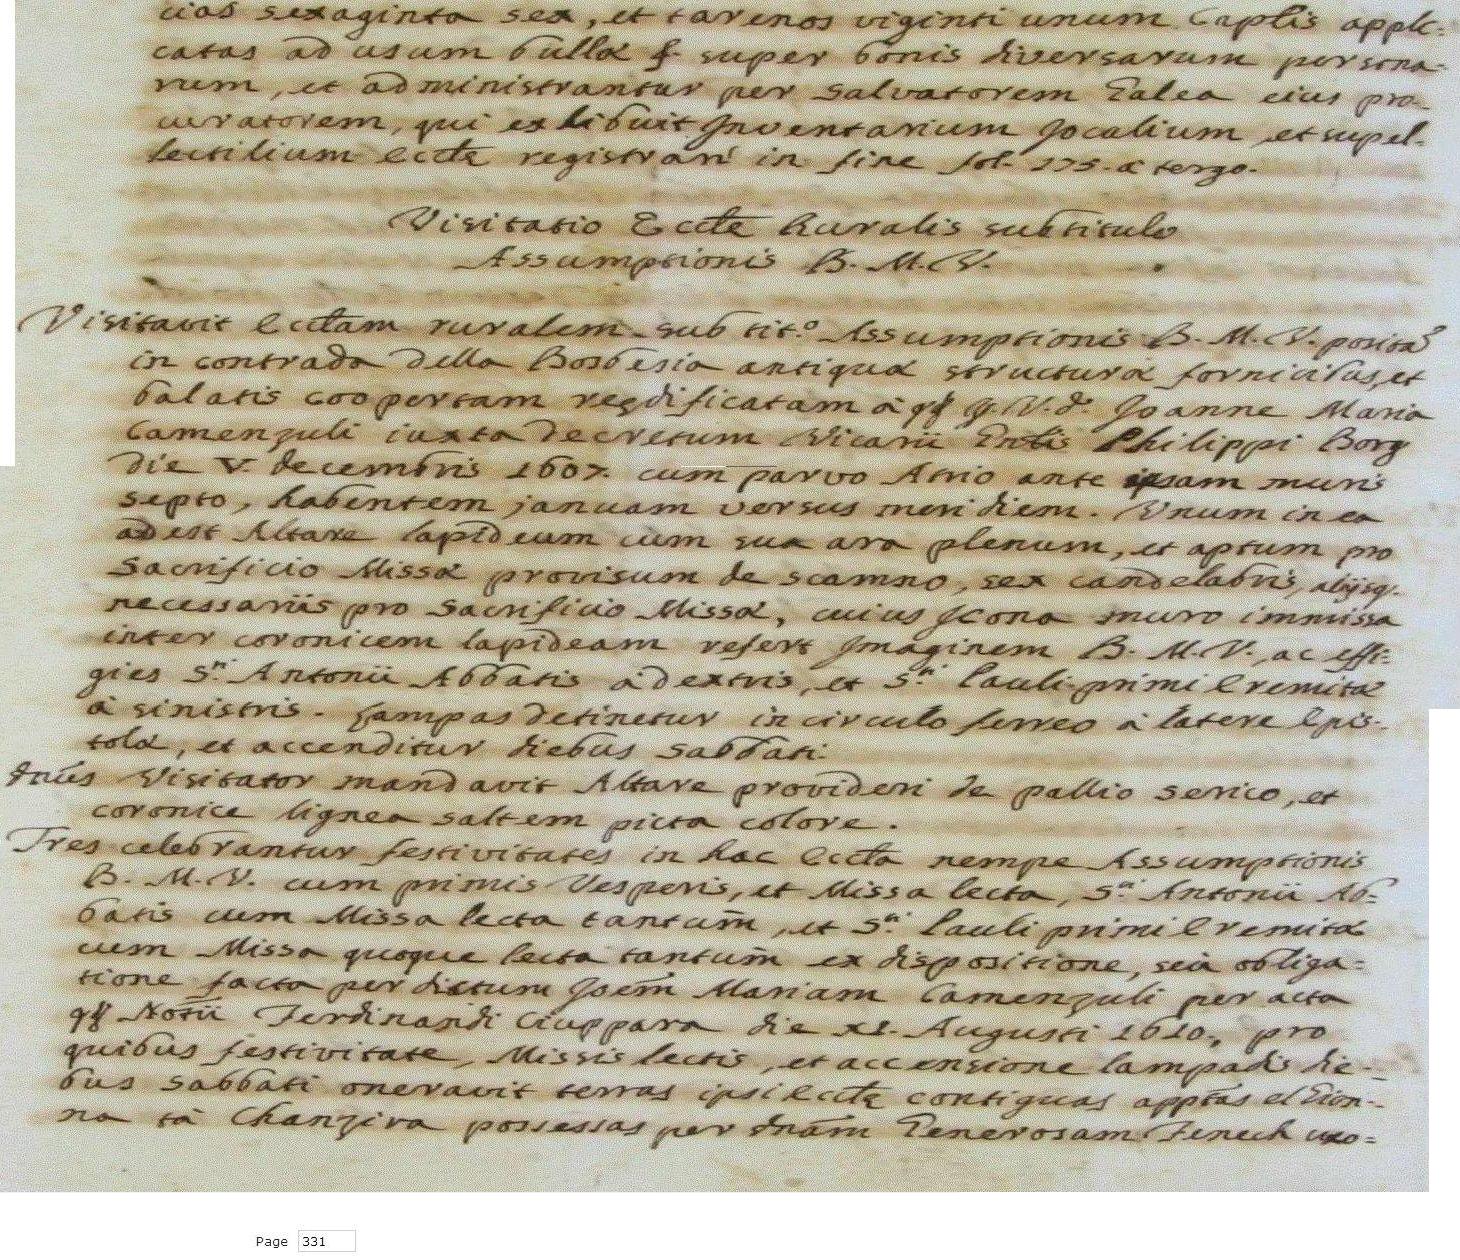 cias sexaginta sex, et tarenos viginti unum Captis appli:
catas ad usum bullæ super bonis diversarum persona-
rum, et administrantur per Salvatorem Galea eius pro-
curatorem, qui exhibuit Inventarium Jocalium, et supel-
lectilium Ecclæ registrari in fine fol. 275. a tergo.
Visitatio Ecclæ Ruralis sub titulo
Assumptionis B. M. V.
Visitavit Ecclam ruralem sub tit.º Assumptionis B. M. V. posita
in contrada della Bosbesia antiqua structura fornicibus, et
balatis coopertam reedificatam à qd J. V. D. Joanne Maria
Camenzuli iuxta decretum Vicarii Philippi Borg
die V. decembris 1607. cum parvo Atrio ante ipsam muris
septo, habentem januam versus meridiem. Unum in ea
adest Altare lapideum cum sua ara plenum, et aptum pro
Sacrificio Missæ provisum de scamno, sex candelabris, alijsq.
necessariis pro Sacrificio Missæ, cuius Icona muro immissa
inter coronicem lapideam refert Imaginem B. M. V., ac effi:
gies S.ti Antonii Abbatis à dextris, et S.ti Pauli primi Eremitæ
à sinistris. Lampas detinetur in circulo ferreo a latere Epis-
tolæ, et accenditur diebus Sabbati.
dnus Visitator mandavit Altare provideri de pallio serico, et
coronice lignea saltem picta colore.
Tres celebrantur festivitates in hac Eccla nempe Assumptionis
B. M. V. cum primis Vesperis, et Missa lecta, S.ti Antonii Ab=
batis cum Missa lecta tantum, et S.ti Pauli primi Eremitæ
cum Missa quoque lecta tantum ex dispositione, seu obliga=
tione facta per dictum Joem Mariam Camenzuli per acta
qd Notii Ferdinandi Ciappara die XI. Augusti 1610., pro
quibus festivitate, Missis lectis, et accensione lampadis die-
bus Sabbati oneravit terras ipsi Ecclæ contiguas apptas el Gion-
na ta Chanzira possessas per dnam Generosam Fenech uxo=
Page 331